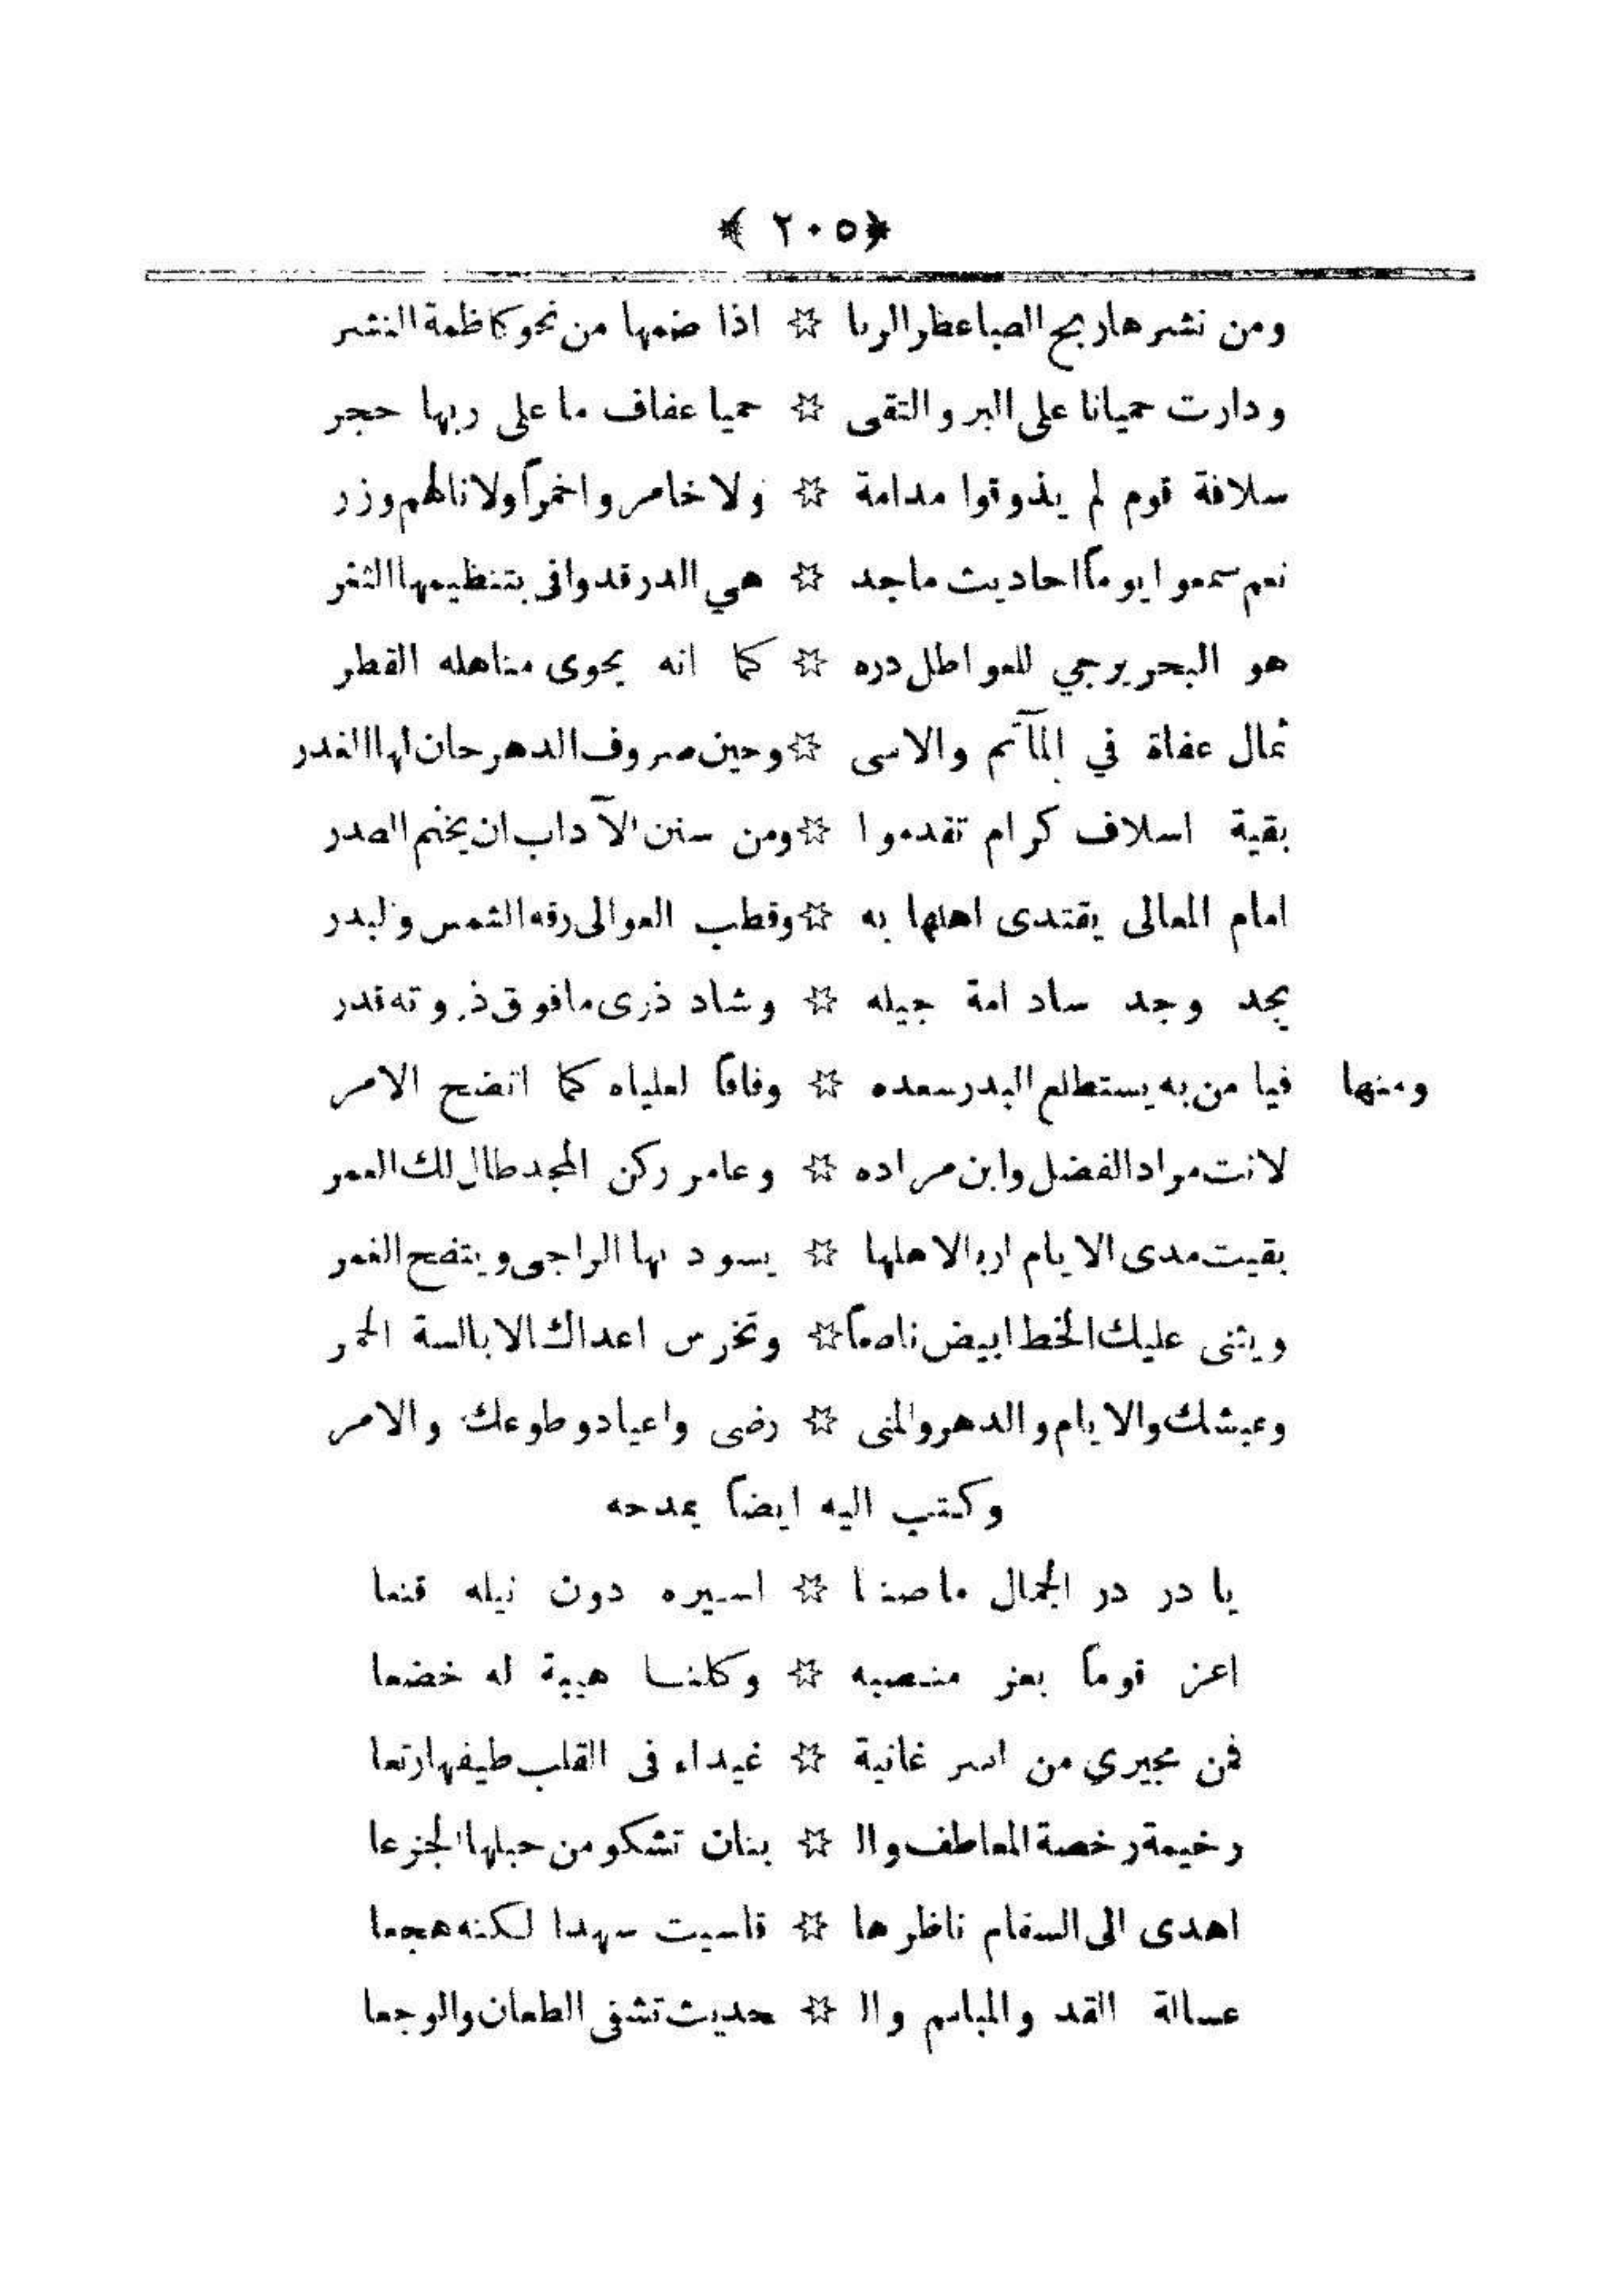 ﴿٢٠٥﴾
ومن نشرها ريح الصبا عطر الربا ☆ اذا ضمها من نحو كاظمة النشر
ودارت حميانا على البر والتقى ☆ حميا عفاف ما على ربها حجر
سلافة قوم لم يذوقوا مدامة ☆ ولا خامروا خمراً ولا نالهم وزر
نعم سمعوا يوماً احاديث ماجد ☆ هي الدر قد وافى بتنظيمها الثغر
هو البحر يرجي للعواطل دره ☆ كما انه يحوى مناهله القطر
ثمال عفاة في المآتم والاسى ☆ وحين صروف الدهر حان لها الغدر
بقية اسلاف كرام تقدموا ☆ ومن سنن الآداب ان يختم الصدر
امام المعالى يقتدى اهلها به ☆ وقطب العوالى رقه الشمس والبدر
بجد وجد ساد امة جيله ☆ وشاد ذرى ما فوق ذروته قدر
ومنها فيا من به يستطلع البدر سعده ☆ وفاقاً لعلياه كما اتضح الامر
لانت مراد الفضل وابن مراده ☆ وعامر ركن المجد طال لك العمر
بقيت مدى الايام ارباً لاهلها ☆ يسود بها الراجى ويتضح الغمر
ويثنى عليك الخط ابيض ناصعاً ☆ وتخرس اعداك الابالسة الحمر
وعيشك والايام والدهر والمنى ☆ رضى واعياد وطوعك والامر
وكتب اليه ايضاً يمدحه
يا در در الجمال ما صنعا ☆ اسيره دون نيله قنعا
اعز قوماً بعز منصبه ☆ وكلنا هيبة له خضعا
فمن مجيري من اسر غانية ☆ غيداء فى القلب طيفها رتعا
رخيمة رخصة المعاطف وال ☆ بنان تشكو من حبلها الجزعا
اهدى الى السقام ناظرها ☆ قاسيت سهدا لكنه هجعا
عسالة القد والمباسم وال ☆ حديث تشفى الطعان والوجعا